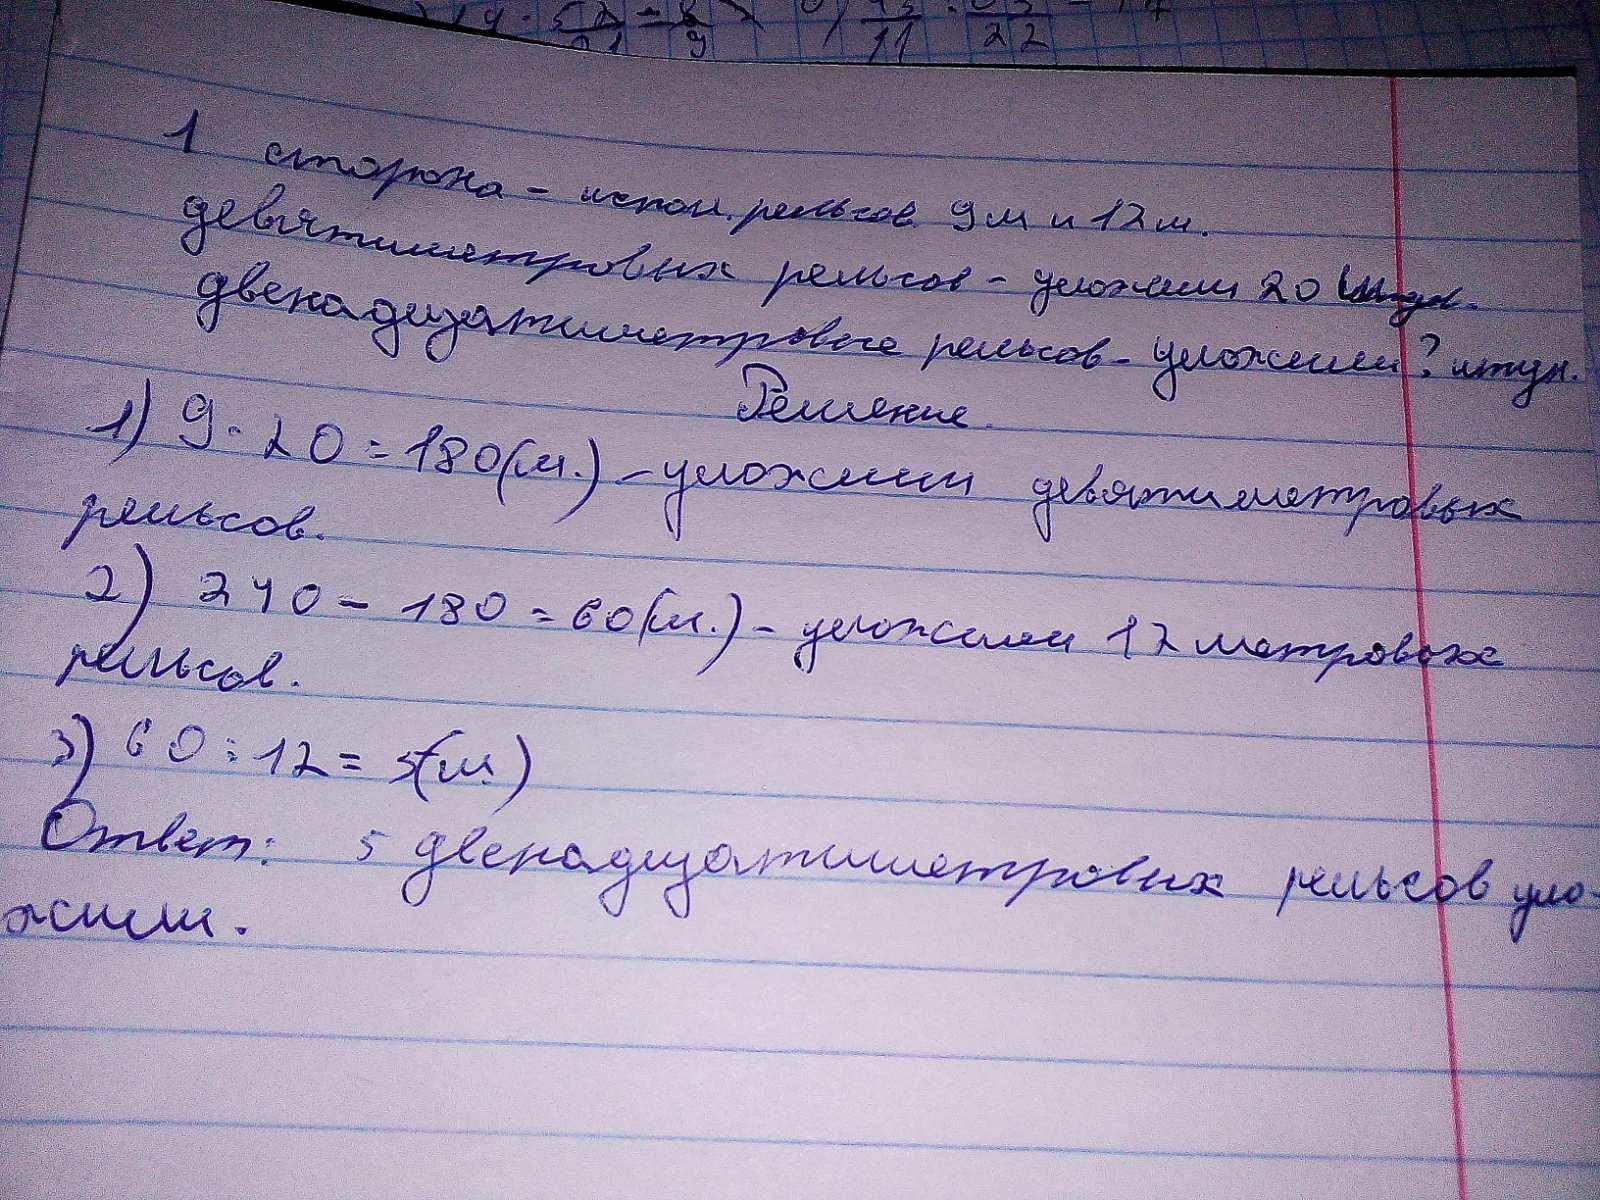 1 сторона - испол. рельсов 9м и 12м.
девятиметровых рельсов - уложили 20
двенадцатиметровые рельсов - уложили ? штук.
Решение.
1) 9 · 20 = 180(м.) - уложили девятиметровых
рельсов.
2) 240 - 180 = 60(м.) - уложили 12 метровых
рельсов.
3) 60 : 12 = 5(м.)
Ответ: 5 двенадцатиметровых рельсов уло-
жили.